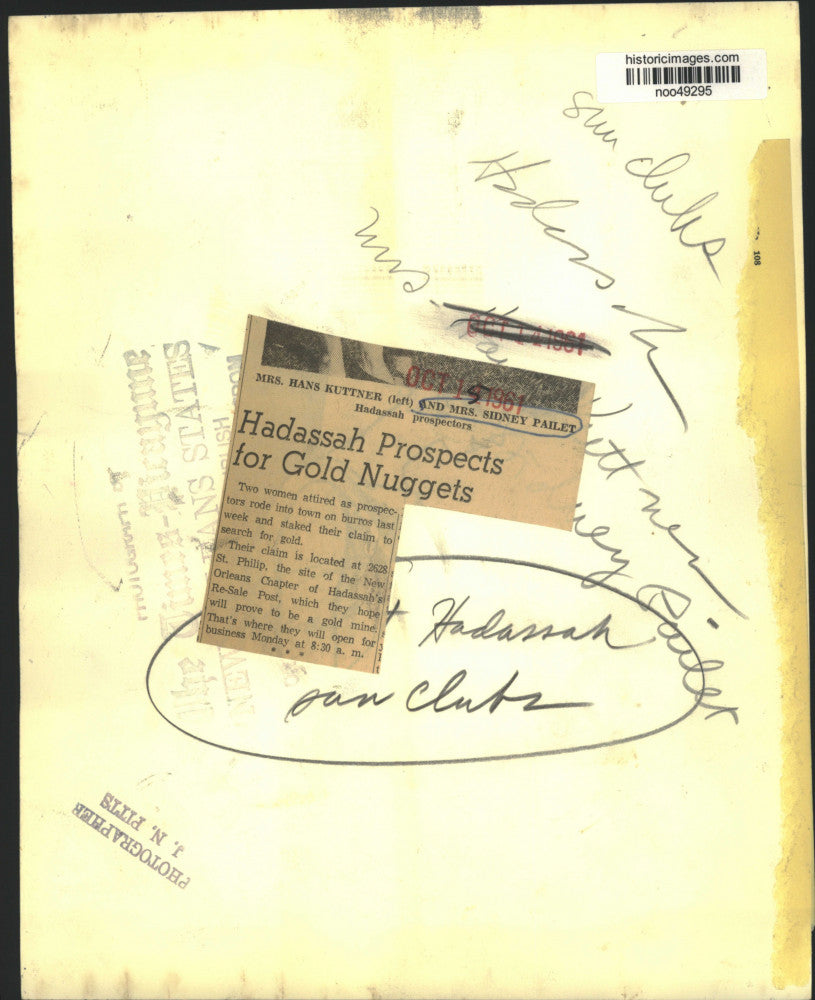 historicimages.com
noo49295
sun clubs
Hadassah
Mrs.
108
OCT 14 1961
OCT 15 1961
MRS. HANS KUTTNER (left) AND MRS. SIDNEY PAILET
Hadassah prospectors
Hadassah Prospects
for Gold Nuggets
Two women attired as prospec-
tors rode into town on burros last
week and staked their claim to
search for gold.
Their claim is located at 2628
St. Philip, the site of the New
Orleans Chapter of Hadassah's
Re-Sale Post, which they hope
will prove to be a gold mine.
That's where they will open for
business Monday at 8:30 a. m.
* * *
Pailet
Hadassah
sun clubs
NEW
STATES
PHOTOGRAPHER
J. N. PITTS